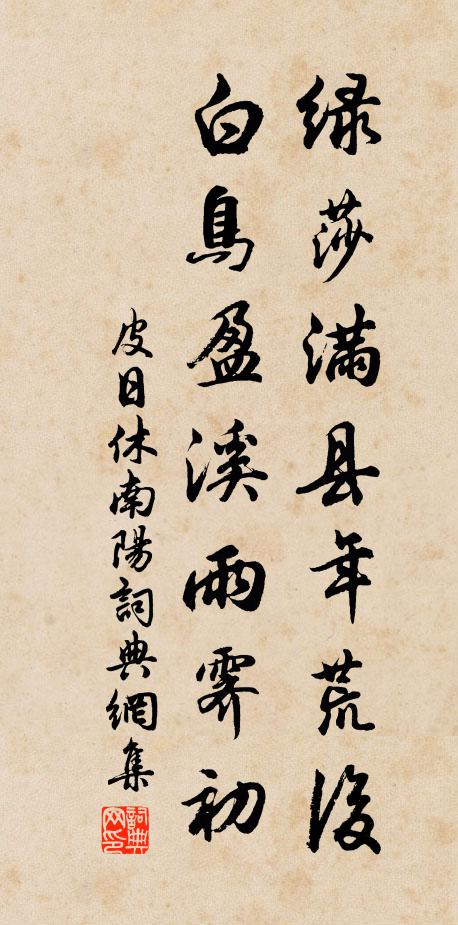 绿莎满县年荒後
白鳥盈溪雨霽初
皮日休南陽詞典網集
詞典网印